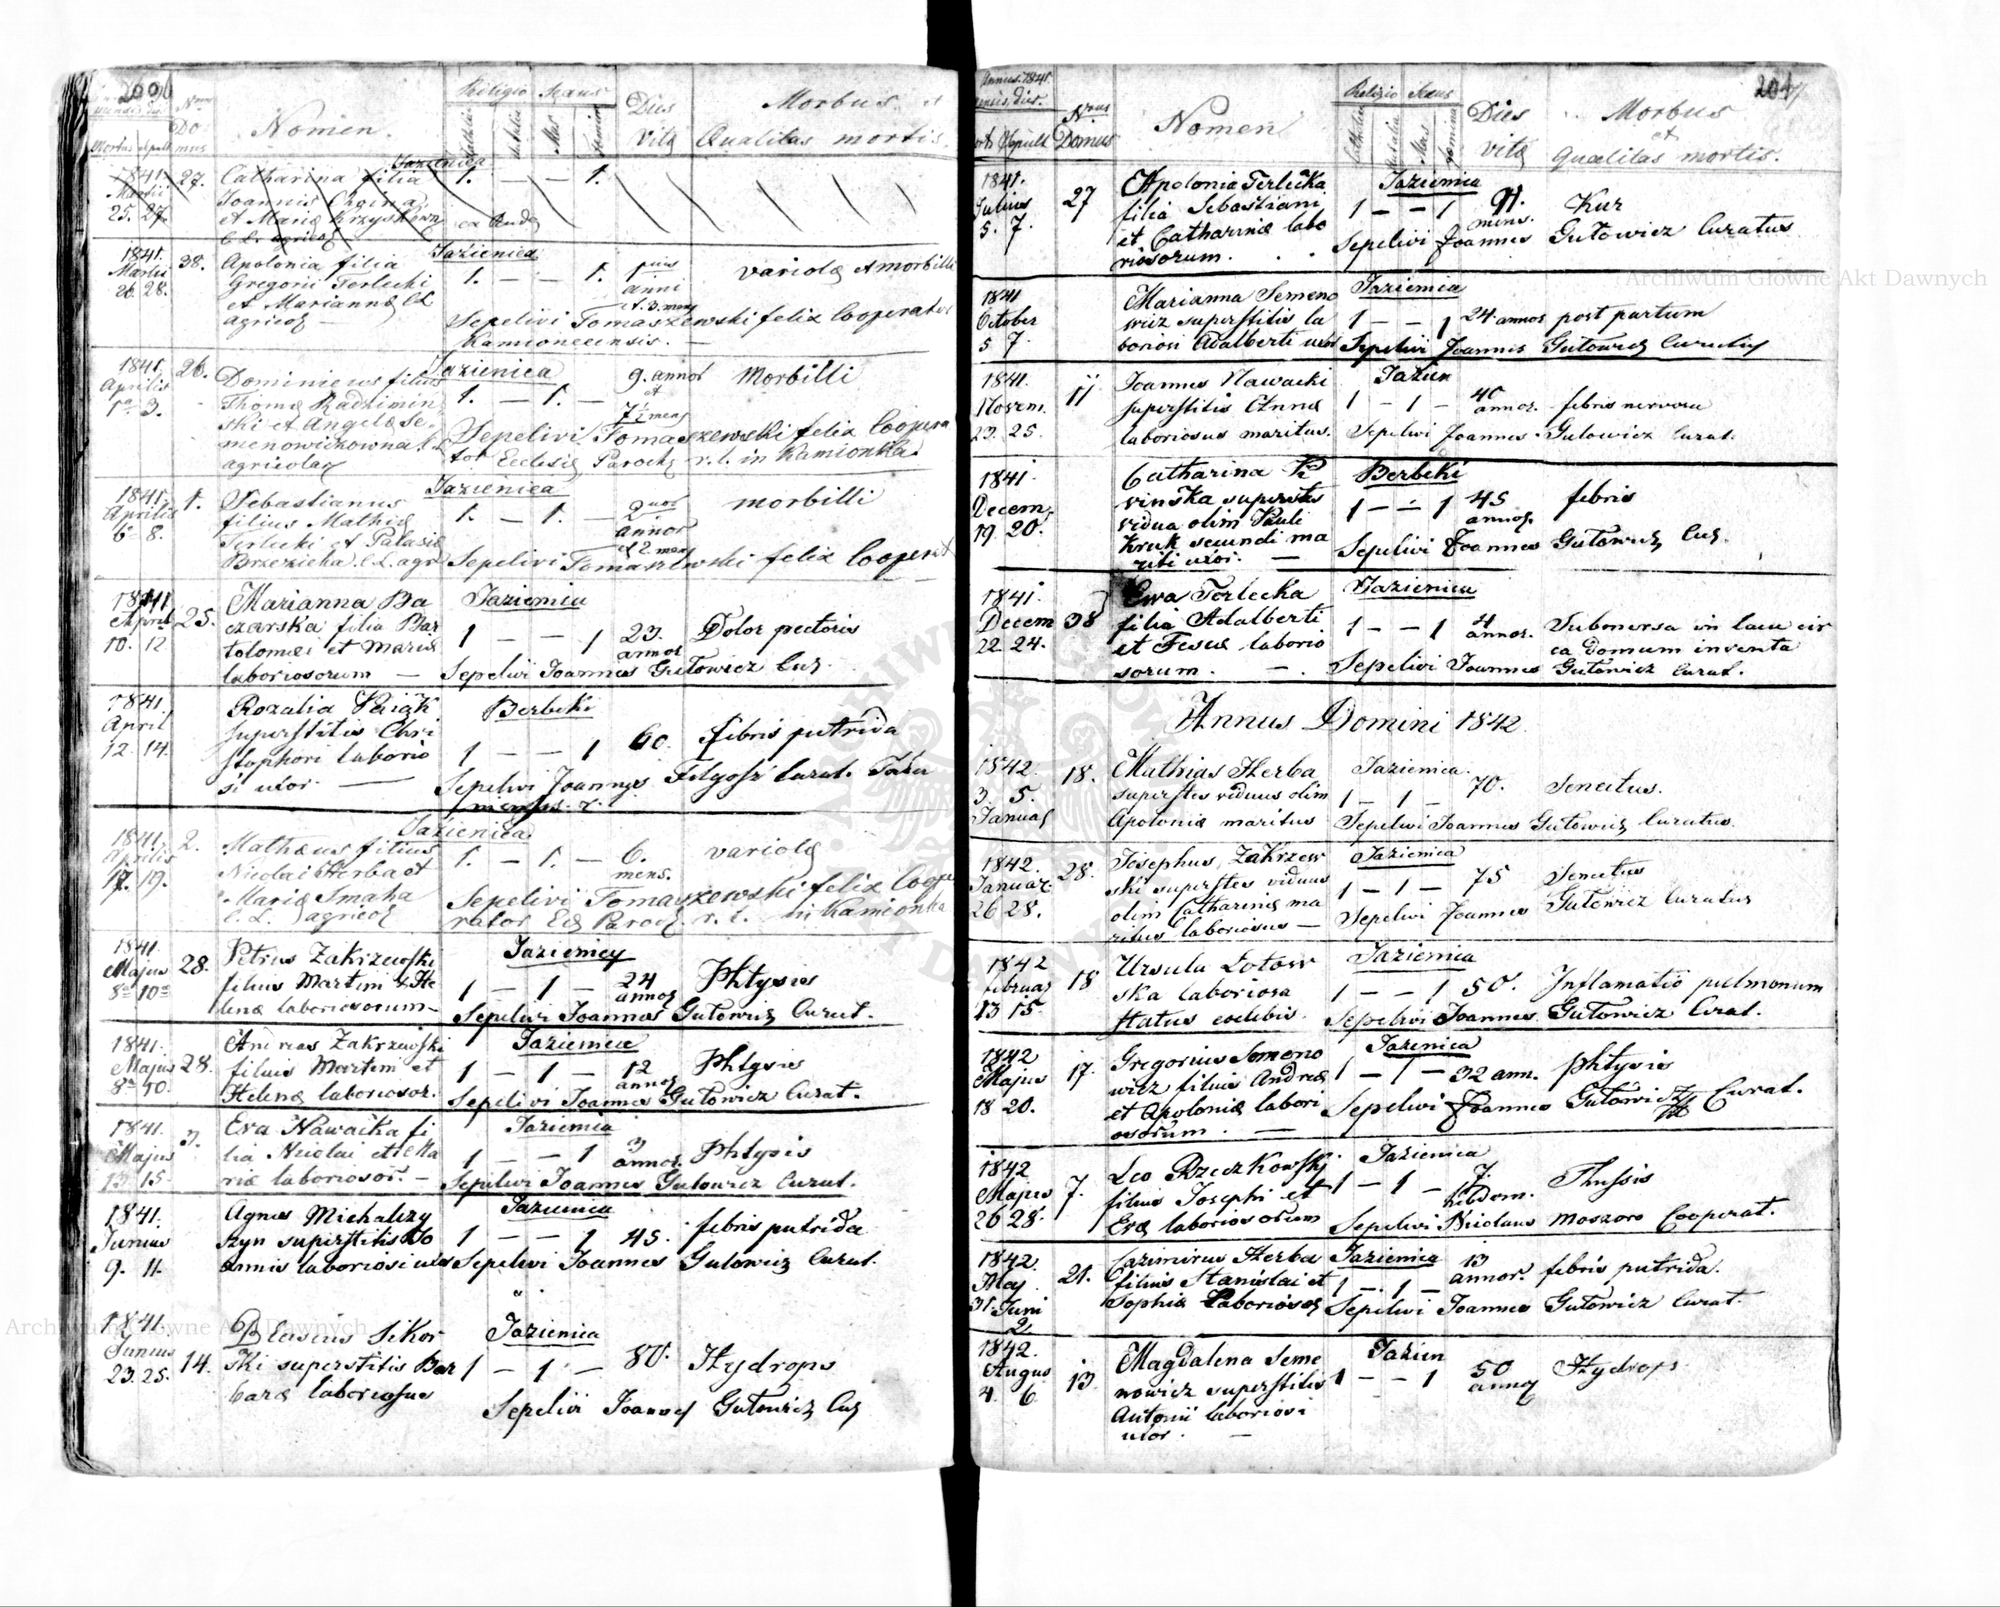 206
Religio Sexus
Dies
Morbus et
Nomen.
Vitæ
Qualitas mortis
Jazienica
1841.
Martii
25. 27.
27.
Catharina filia
Joannis
et Mariæ
1. — — 1.
1841.
Martii
26. 28.
38.
Apolonia filia
Gregorii Terlecki
et Mariannæ
agricol
Jazienica
1. — — 1.
anni
et 3. mens
variolæ et morbilli
Sepelivi Tomaszewski felix Cooperator
Kamionecensis. —
1841.
Aprilis
1a 3.
26.
Dominicus filius
Thomæ Radzimin
ski et Angelæ Se
menowiczowna
agricolar
Jazienica
1. — 1. —
9. annor
et
7 mens
Morbilli
Sepelivi Tomaszewski felix Coopera
tor Ecclesiæ Paroch r. l. in Kamionka.
1841.
Aprilis
6a 8.
1.
Sebastianus
filius Mathiæ
Terlecki et Palasiæ
Jazienica
1. — 1. —
annor
et 2 men
morbilli
Sepelivi Tomaszewski felix Cooperat
1841
April
10. 12
25.
Marianna Ba
czarska filia Bar
tolomei et Mariæ
laboriosorum —
Jazienica
1 — — 1
23.
annor
Dolor pectoris
Sepelivi Joannes Gutowicz Cur.
1841.
April
12. 14.
Rozalia
superstitis Chri
stophori laborio
si uxor. —
Berbeki
1 — — 1
60.
febris putrida
Sepelivi Joannes Curat.
1841.
Aprilis
17. 19.
2.
Mathæus filius
Nicolai Herba et
Mariæ Smaha
agricol
Jazienica
1. — 1. —
6.
mens.
variolæ
Sepelivi Tomaszewski felix Coope
rator Ecc Paroch r. l. in Kamionka
1841.
Majus
8a 10a
28.
Petrus Zakrzewski
filius Martini & He
lenæ laboriosorum —
Jazienicy
1 — 1 —
24
annor
Phtysis
Sepelivi Joannes Gutowicz Curat.
1841.
Majus
8a 10.
28.
Andreas Zakrzewski
filius Martini et
Helenæ laboriosor.
Jazienica
1 — 1 —
12
annor
Phtysis
Sepelivi Joannes Gutowicz Curat.
1841.
Majus
13. 15.
3.
Eva Nawacka fi
lia Nicolai et Ma
riæ laboriosor. —
Jazienica
1 — — 1
3
annor.
Phtysis
Sepelivi Joannes Gutowicz Curat.
1841.
Junius
9. 11.
Agnes Michalczy
szyn superstitis Jo
annis laboriosi uxor
Jazienica
1 — — 1
45.
febris putrida
Sepelivi Joannes Gutowicz Curat.
1841.
Junius
23. 25.
14.
Blasius Sikor
ski superstitis Bar
baræ laboriosus
Jazienica
1 — 1 —
80.
Hydrops
Sepelivi Joannes Gutowicz Cur
Annus 1841.
Domus
Nomen
Religio Sexus
Dies
vitæ
Morbus
et
Qualitas mortis.
1841.
Julius
5. 7.
27
Apolonia Terlecka
filia Sebastiani
et Catharinæ labo
riosorum.
Jazienica
1 — — 1
mens.
Kur
Sepelivi Joannes Gutowicz Curatus
1841
October
5 7.
Marianna Semeno
wicz superstitis la
boriosi Adalberti uxor
Jazienica
1 — — 1
24 annor
post partum
Sepelivi Joannes Gutowicz Curatus
1841.
Novem.
23. 25.
11
Joannes Nawacki
superstitis Annæ
laboriosus maritus.
Jazien
1 — 1 —
40
annor.
febris nervosa
Sepelivi Joannes Gutowicz Curat.
1841.
Decem.
19. 20.
Catharina Ki
winska superstes
vidua olim Pauli
Kruk secundi ma
riti uxor. —
Berbeki
1 — — 1
45
annor.
febris
Sepelivi Joannes Gutowicz Cur.
1841.
Decem
22. 24.
38
Ewa Terlecka
filia Adalberti
et Tesciæ laborio
sorum.
Jazienica
1 — — 1
4
annor.
Submersa in lacu cir
ca domum inventa
Sepelivi Joannes Gutowicz Curat.
Annus Domini 1842.
1842.
3. 5.
Januar
18.
Mathias Herba
superstes viduus olim
Apoloniæ maritus
Jazienica.
1 — 1 —
70.
Senectus.
Sepelivi Joannes Gutowicz Curatus.
1842.
Januar.
26 28.
28.
Josephus Zakrzew
ski superstes viduus
olim Catharinæ ma
ritus laboriosus —
Jazienica
1 — 1 —
75
Senectus
Sepelivi Joannes Gutowicz Curatus
1842
februar
13 15.
18
Ursula Lotow
ska laboriosa
status coelibis.
Jazienica
1 — — 1
50.
Inflamatio pulmonum
Sepelivi Joannes Gutowicz Curat.
1842
Majus
18 20.
17.
Gregorius Semeno
wicz filius Andreæ
et Apoloniæ labori
osorum. —
Jazienica
1 — 1 —
32 ann.
phtysis
Sepelivi Joannes Gutowicz Curat.
1842
Majus
26 28.
7.
Leo Rzeczkowski
filius Josephi et
Evæ laboriosorum
Jazienica
1 — 1 —
7.
hebdom.
Thussis
Sepelivi Nicolaus Moszoro Cooperat.
1842.
Maj
31. Juni
2
21.
Cazimirus Herba
filius Stanislai et
Sophiæ laborios
Jazienica
1 — 1 —
13
annor.
febris putrida.
Sepelivi Joannes Gutowicz Curat.
1842.
Augus
4. 6.
13
Magdalena Seme
nowicz superstitis
Antonii laboriosi
uxor. —
Jazien
1 — — 1
50
annor
Hydrops
Archiwum Główne Akt Dawnych
Archiwum Główne Akt Dawnych